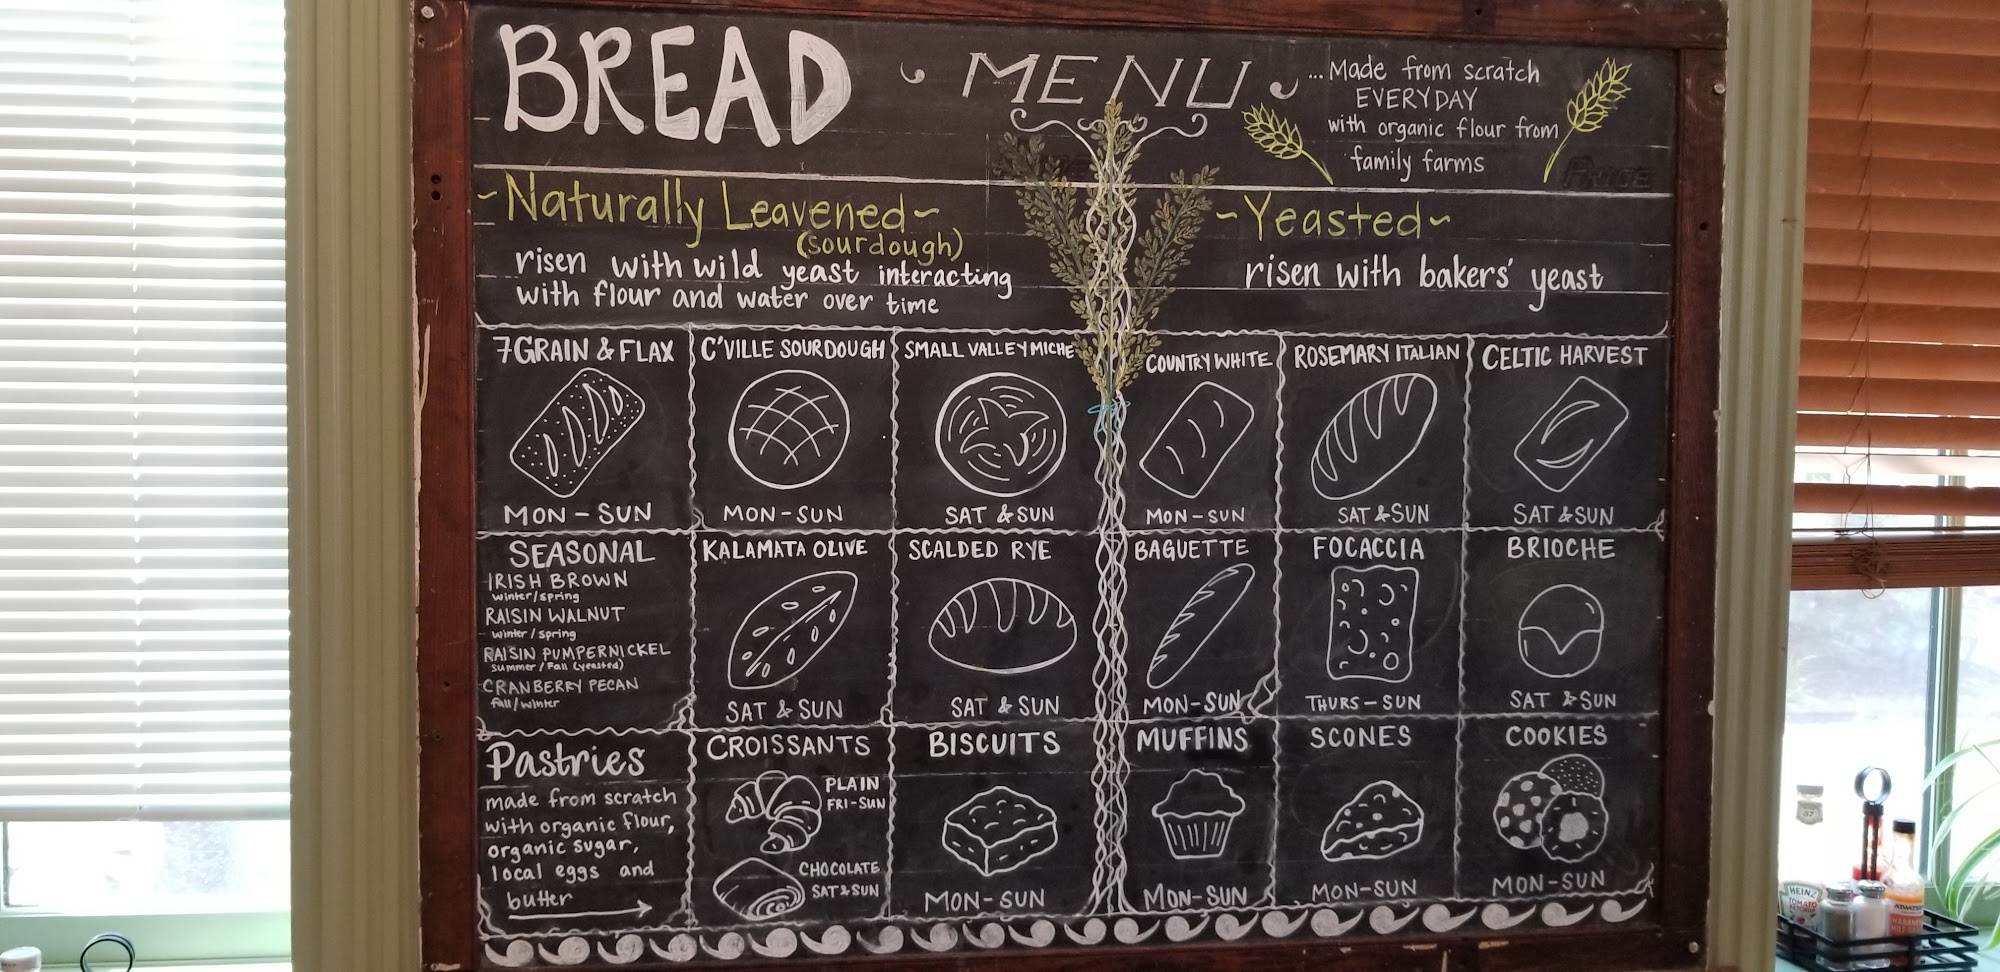 BREAD MENU
...Made from scratch
EVERYDAY
with organic flour from
family farms
PRICE
~Naturally Leavened~
(sourdough)
risen with wild yeast interacting
with flour and water over time
~Yeasted~
risen with bakers' yeast
7 GRAIN & FLAX
MON - SUN
C'VILLE SOURDOUGH
MON - SUN
SMALL VALLEY MICHE
SAT & SUN
COUNTRY WHITE
MON - SUN
ROSEMARY ITALIAN
SAT & SUN
CELTIC HARVEST
SAT & SUN
SEASONAL
IRISH BROWN
winter/spring
RAISIN WALNUT
winter/spring
RAISIN PUMPERNICKEL
summer/Fall (yeasted)
CRANBERRY PECAN
fall/winter
KALAMATA OLIVE
SAT & SUN
SCALDED RYE
SAT & SUN
BAGUETTE
MON - SUN
FOCACCIA
THURS - SUN
BRIOCHE
SAT & SUN
Pastries
made from scratch
with organic flour,
organic sugar,
local eggs and
butter
CROISSANTS
PLAIN
FRI - SUN
CHOCOLATE
SAT & SUN
BISCUITS
MON - SUN
MUFFINS
MON - SUN
SCONES
MON - SUN
COOKIES
MON - SUN
57
HEINZ
TOMATO
KETCHUP
HABANERO